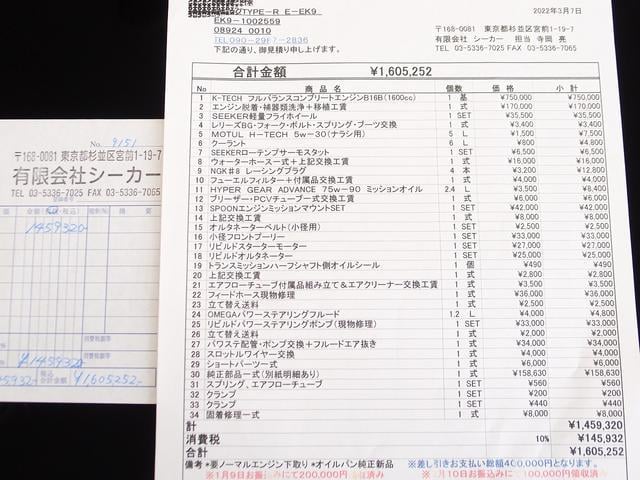 TYPE-R E-EK9
EK9-1002559
08924 0010
TEL090-29F7-2836
下記の通り、御見積り申し上げます。
2022年3月7日
〒168-0081 東京都杉並区宮前1-19-7
有限会社 シーカー 担当 寺岡 亮
TEL 03-5336-7025 FAX 03-5336-7065
合計金額 ¥1,605,252
No 商品名 個数 価格 小計
1 K-TECH フルバランスコンプリートエンジンB16B(1600cc) 1 基 ¥750,000 ¥750,000
2 エンジン脱着・補器類洗浄+移植工賃 1 式 ¥170,000 ¥170,000
3 SEEKER軽量フライホイール 1 SET ¥35,500 ¥35,500
4 レリーズBG・フォーク・ボルト・スプリング・ブーツ交換 1 式 ¥3,400 ¥3,400
5 MOTUL H-TECH 5w-30(ナラシ用) 5 L ¥1,500 ¥7,500
6 クーラント 6 L ¥800 ¥4,800
7 SEEKERローテンプサーモスタット 1 SET ¥6,500 ¥6,500
8 ウォーターホース一式+上記交換工賃 1 式 ¥16,000 ¥16,000
9 NGK#8 レーシングプラグ 4 本 ¥3,200 ¥12,800
10 フューエルフィルター+付属品交換工賃 1 式 ¥4,000 ¥4,000
11 HYPER GEAR ADVANCE 75w-90 ミッションオイル 2.4 L ¥3,500 ¥8,400
12 ブリーザー・PCVチューブ一式交換工賃 1 式 ¥6,000 ¥6,000
13 SPOONエンジンミッションマウントSET 1 SET ¥42,000 ¥42,000
14 上記交換工賃 1 式 ¥8,000 ¥8,000
15 オルタネーターベルト(小径用) 1 SET ¥2,500 ¥2,500
16 小径フロントプーリー 1 SET ¥33,000 ¥33,000
17 リビルドスターターモーター 1 SET ¥27,000 ¥27,000
18 リビルドオルタネーター 1 SET ¥25,000 ¥25,000
19 トランスミッションハーフシャフト側オイルシール 1 個 ¥490 ¥490
20 上記交換工賃 1 式 ¥2,800 ¥2,800
21 エアフローチューブ付属品組み立て&エアクリーナー交換工賃 1 式 ¥3,500 ¥3,500
22 フィードホース現物修理 1 式 ¥36,000 ¥36,000
23 立て替え送料 1 式 ¥2,500 ¥2,500
24 OMEGAパワーステアリングフルード 1.2 L ¥4,000 ¥4,800
25 リビルドパワーステアリングポンプ(現物修理) 1 SET ¥33,000 ¥33,000
26 立て替え送料 1 式 ¥2,000 ¥2,000
27 パワステ配管・ポンプ交換+フルードエア抜き 1 式 ¥34,000 ¥34,000
28 スロットルワイヤー交換 1 式 ¥4,000 ¥4,000
29 ショートパーツ一式 1 式 ¥6,000 ¥6,000
30 純正部品一式(別紙明細あり) 1 式 ¥158,630 ¥158,630
31 スプリング、エアフローチューブ 1 SET ¥560 ¥560
32 クランプ 1 SET ¥200 ¥200
33 クランプ 1 SET ¥440 ¥440
34 固着修理一式 1 式 ¥8,000 ¥8,000
計 ¥1,459,320
消費税 10% ¥145,932
合計 ¥1,605,252
備考 *要ノーマルエンジン下取り *オイルパン純正新品 ※差し引きお支払い総額400,000円となります。
※1月9日お振込みにて200,000円 済み ※1月10日お振込みにて100,000円領収済み
No. 9151
〒168-0081 東京都杉並区宮前1-19-7
有限会社シーカー
TEL 03-5336-7025 FAX 03-5336-7065
金額(税抜・税込) 税率% 摘要
1459320-
消費税額等
%
¥1459320-
消費税額等
5932- 税込合計金額 ¥1,605,252-